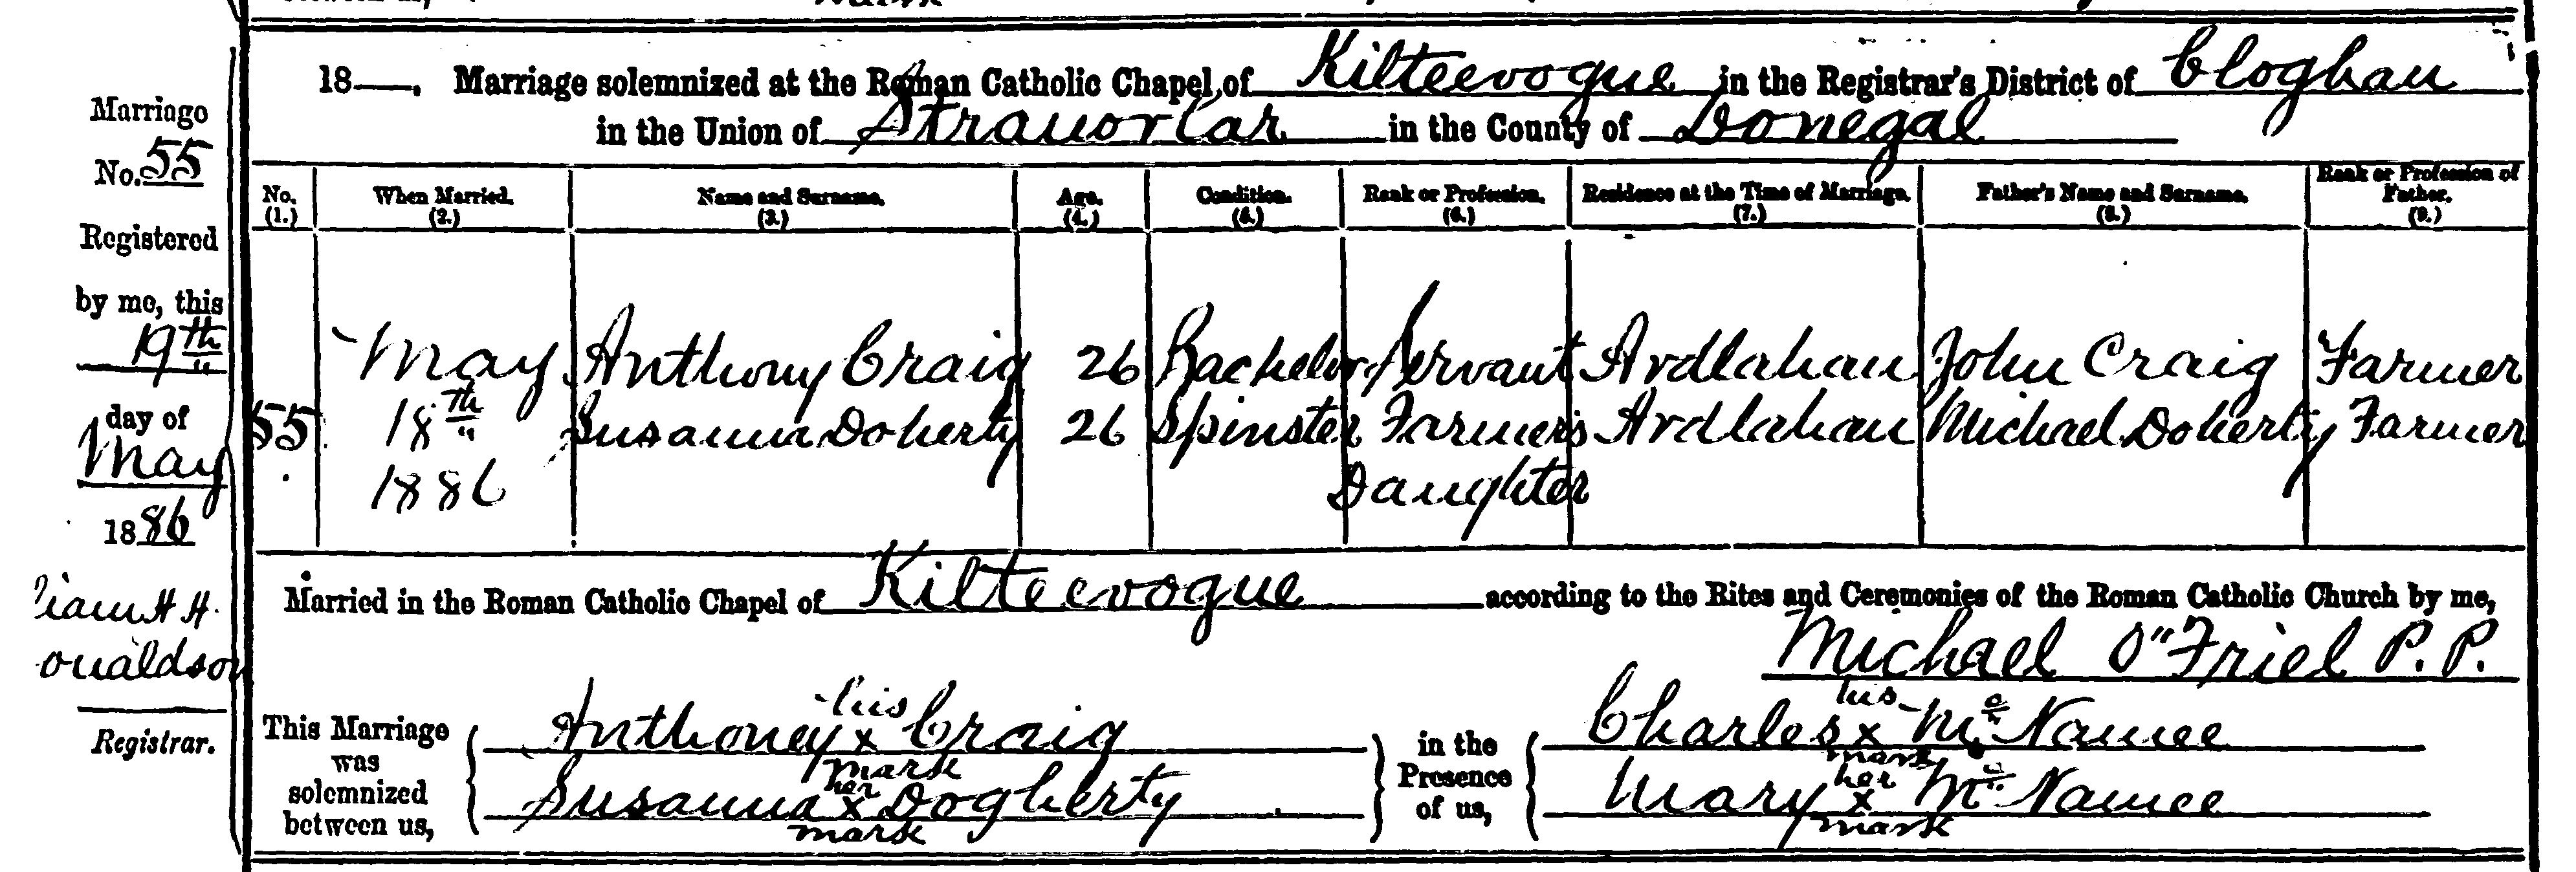 18—. Marriage solemnized at the Roman Catholic Chapel of Kilteevogue in the Registrar's District of Cloghan
in the Union of Stranorlar in the County of Donegal
Marriage
No. 55
Registered
by me, this
19th
day of
May
1886
liam H H.
onaldson
Registrar.
No. (1.) When Married. (2.) Name and Surname. (3.) Age. (4.) Condition. (5.) Rank or Profession. (6.) Residence at the Time of Marriage. (7.) Father's Name and Surname. (8.) Rank or Profession of Father. (9.)
May Anthony Craig 26 Bachelor Servant Ardlahan John Craig Farmer
55 18th Susanna Doherty 26 Spinster Farmer's Ardlahan Michael Doherty Farmer
1886 Daughter
Married in the Roman Catholic Chapel of Kilteevogue according to the Rites and Ceremonies of the Roman Catholic Church by me,
Michael O"Friel P.P.
This Marriage was solemnized between us,
Anthoney his x mark Craig
Susanna her x mark Dogherty
in the Presence of us,
Charles his x mark Mc Namee
Mary her x mark Mc Namee